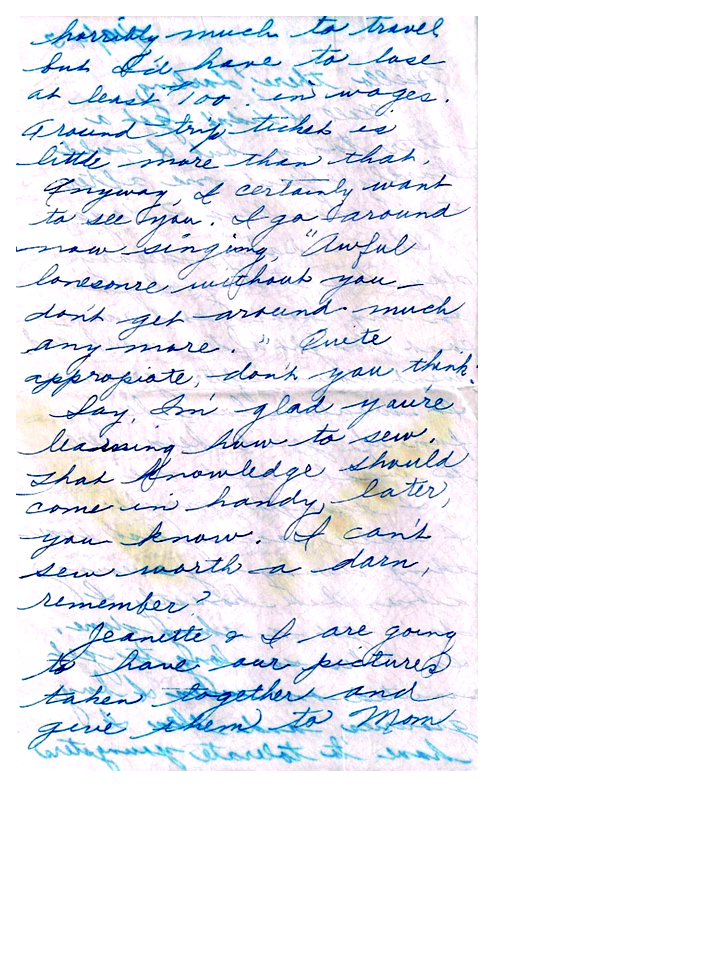 horribly much to travel
but I'd have to lose
at least $100. in wages.
A round trip ticket is
little more than that.
Anyway, I certainly want
to see you. I go around
now singing, "Awful
lonesome without you –
don't get around much
any more." Quite
appropiate, don't you think?
Say, I'm glad you're
learning how to sew.
That knowledge should
come in handy, later,
you know. I can't
sew worth a darn,
remember?
Jeanette & I are going
to have our pictures
taken together and
give them to Mom